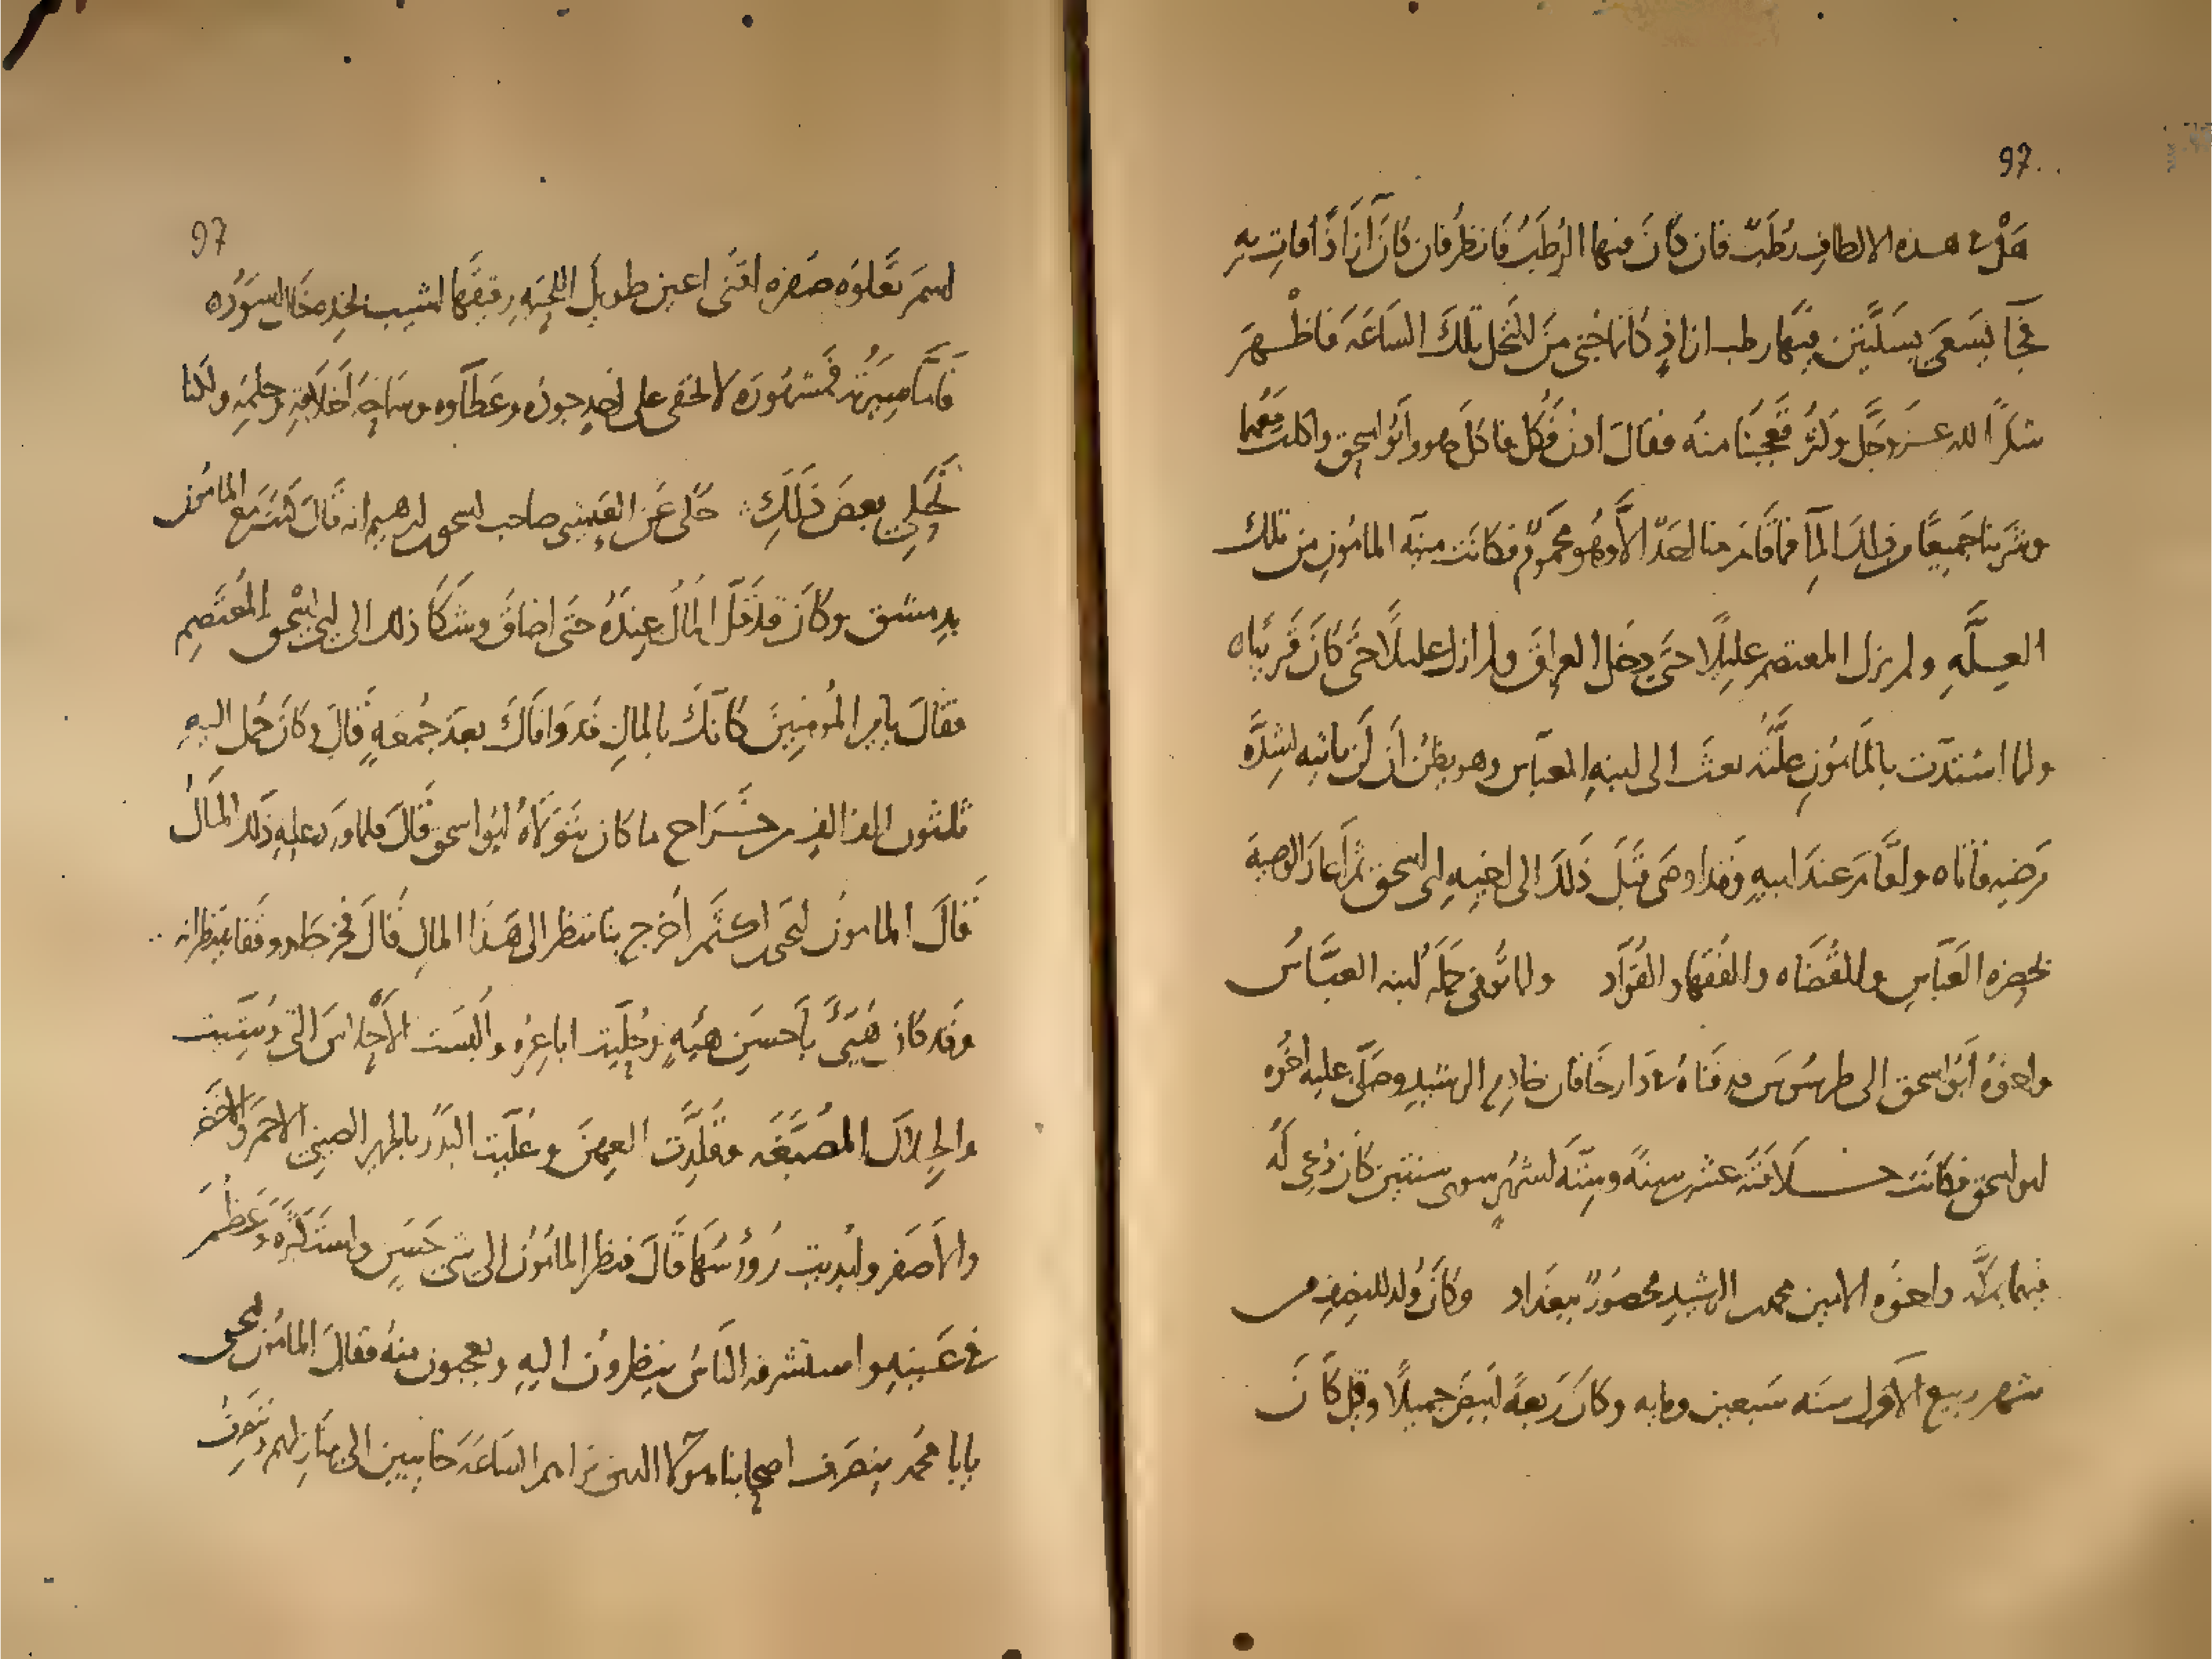 97
هَلْ في هذه الالطاف رُطَبٌ فان كانَ فيها الرُطَبُ فانظر فان كانَ آزَاذًا فاتِ بهِ
فجآ يَسعَى بسَلَّتين فيهَا رطب ازاذٍ كانما جُني منَ النخل تلكَ السَاعَه فاظهرَ
شكرًا لله عز وجَل وكثُر تعجُبُنا منه فقالَ ادن فكُل فاكلَ هو وابُو اسحق واكلتُ معَهما
وشربنا جَميعًا من ذلك المآ فما قامَ منا احَدٌ الا وهُو محمومٌ فكانت منيّه المامُون من تلك
العلّهِ ولم يزل المعتصم عليلًا حتى دخل العراق ولم ازل عليلًا حتى كانَ قريبًا ه
ولما اشتدّت بالمَامُونِ علّتُه بعث الى ابنهِ العبّاس وهو يظن اَن لَن ياتيه لشدّه
مَرضِه فاتاه واقَامَ عندَ ابيهِ وَقد اوصَى قبَل ذَلكَ الى اخيهِ ابي اسحق ثم اعادَ الوصيهَ
بحضره العبّاسِ والقُضَاه والفقهآ والقوّاد ولما تُوفى حمَلَه ابنه العبَّاسُ
واخوُه ابُو اسحق الى طرسُوسَ فدفنَاهُ في دَارِ خاقان خادِم الرشيدِ وصَلّى عليه اخُوه
ابو اسحق فكانت خلافَتُه عشرين سنهً وستّه اشهُرٍ سوى سنتين كان دُعى لَهُ
فيهما بمكّه واخُوه الامين محمد بن الرشيدِ محصُورٌ ببغدَاد وكانَ وُلدَ للنصفِ من
شهر ربيع الاَول سنَه سَبعين ومايه وكانَ رَبعهً ابيَضَ جميلًا وقيل كانَ
97
اسمرَ تعلوُه صُفره اقنَى اعين طويلَ اللحيَهِ رقيقَها اشيب بخدِه خال اسوَدُه
فامّا سِيرَتُه فمشهُورَه لا تخفى على احَدٍ جودُه وعَطآوه وسَماحَه اَخلاقِهِ وحلمِه ولكنا
نحكي بعضَ ذَلكَ حكى عَن العَيشي صاحب اسحق بن ابرهيم انه قالَ كنتُ معَ المامُون
بدمشق وكانَ قد قَلّ المالُ عندَهُ حتى اضاقَ وشكا ذلك الى ابي اسحق المعتصِم
فقالَ يامير المُومنينَ كانّكَ بالمالِ قد وَافاكَ بعدَ جُمعَهٍ قالَ وكانَ حُملَ اليهِ
ثلثون الف الفٍ من خَرَاج ما كان يتوَلاهُ ابو اسحق قالَ فلما ورَد عليهِ ذَلك المالُ
قالَ المامونُ ليَحيى بن اكثَم اَخرج بنا ننظر الى هَذَا المالِ قالَ فخرجَا ووقفا ينظرانه
وقد كان هُيّئَ باَحسَنِ هيئهٍ وحُلّيَت اباعِرُه واُلبسَت الاَحلاسَ التي وُشّيت
والجِلالَ المُصبَّغَه وقُلّدَت العِهنَ وعُلّيَت البدَر بالحرير الصيني الاحمَر والاخضَر
والاصَفر واُبديت رُوُوسُها قالَ فنظر المامُونُ الى شيٍ حَسَنٍ واستَكثَرَه وعَظُمَ
في عَينهِ واستشرفه النّاسُ ينظرونَ اليهِ ويعجبون منهُ فقالَ المامُون ليحيى
يابا محُمد ينصَرف اصحابنا هوُلآ الذين تراهم السَاعَهَ خايبين الى منازلِهم وننصَرِفُ